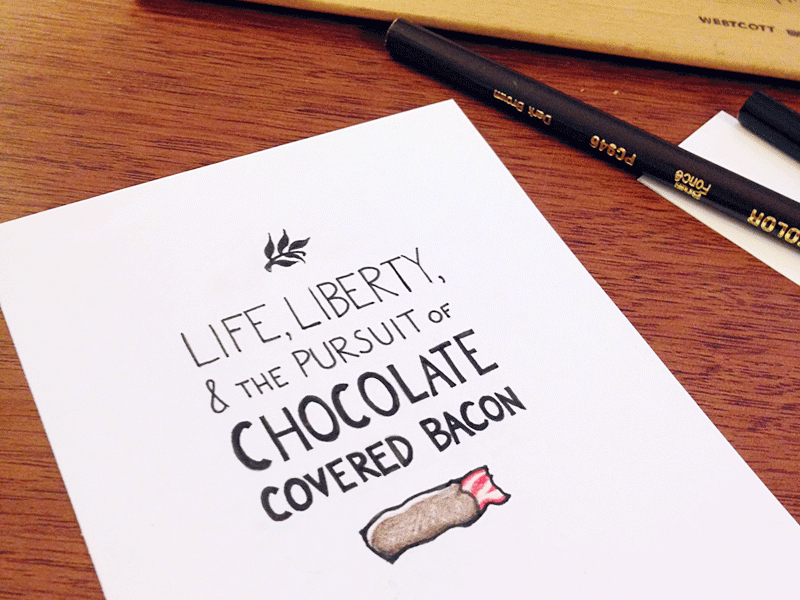 WESTCOTT
Dark Brown
PC946
Foncé
COLOR
LIFE, LIBERTY,
& THE PURSUIT OF
CHOCOLATE
COVERED BACON